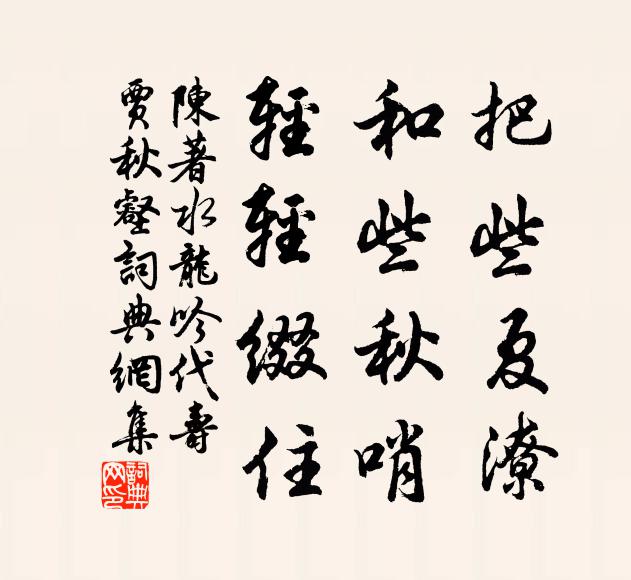 把些夏潦
和些秋哨
輕輕綴住
陳著水龍吟代壽
賈秋壑詞典網集
詞典網印